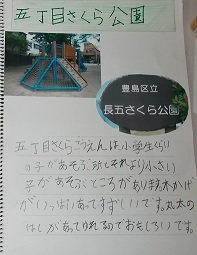 五丁目さくら公園
豊島区立
長五さくら公園
五丁目さくらこうえんは小学生くらい
の子があそぶ所とそれより小さい
子があそぶところがあります。木かげ
がいっぱいあってすずしいです。丸太の
はしがあってゆれるのでおもしろいです。